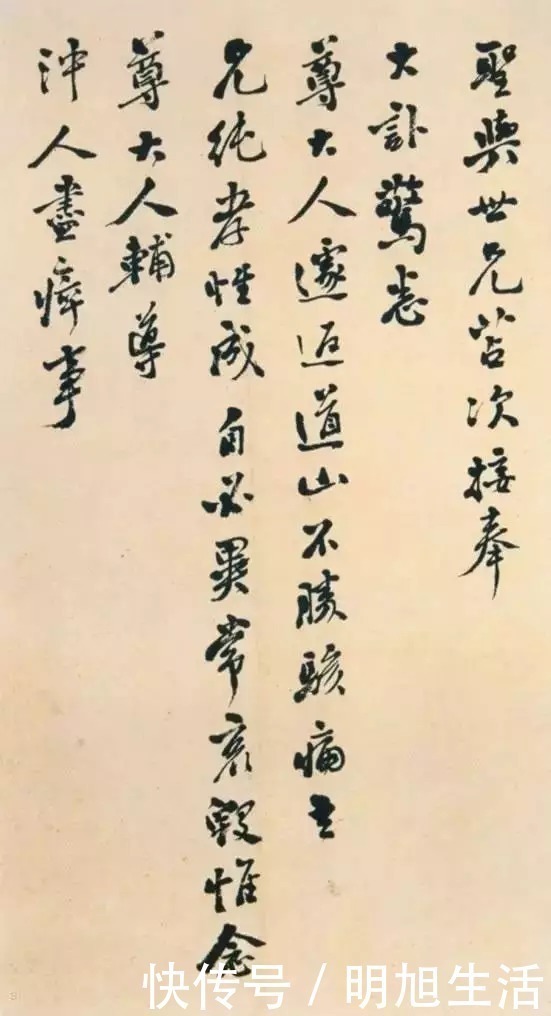 聖與世兄苫次接奉
大訃驚悉
尊大人遽返道山不勝駭痛
兄純孝性成自必異常哀毀惟念
尊大人輔導
沖人盡瘁事
快传号 / 明旭生活